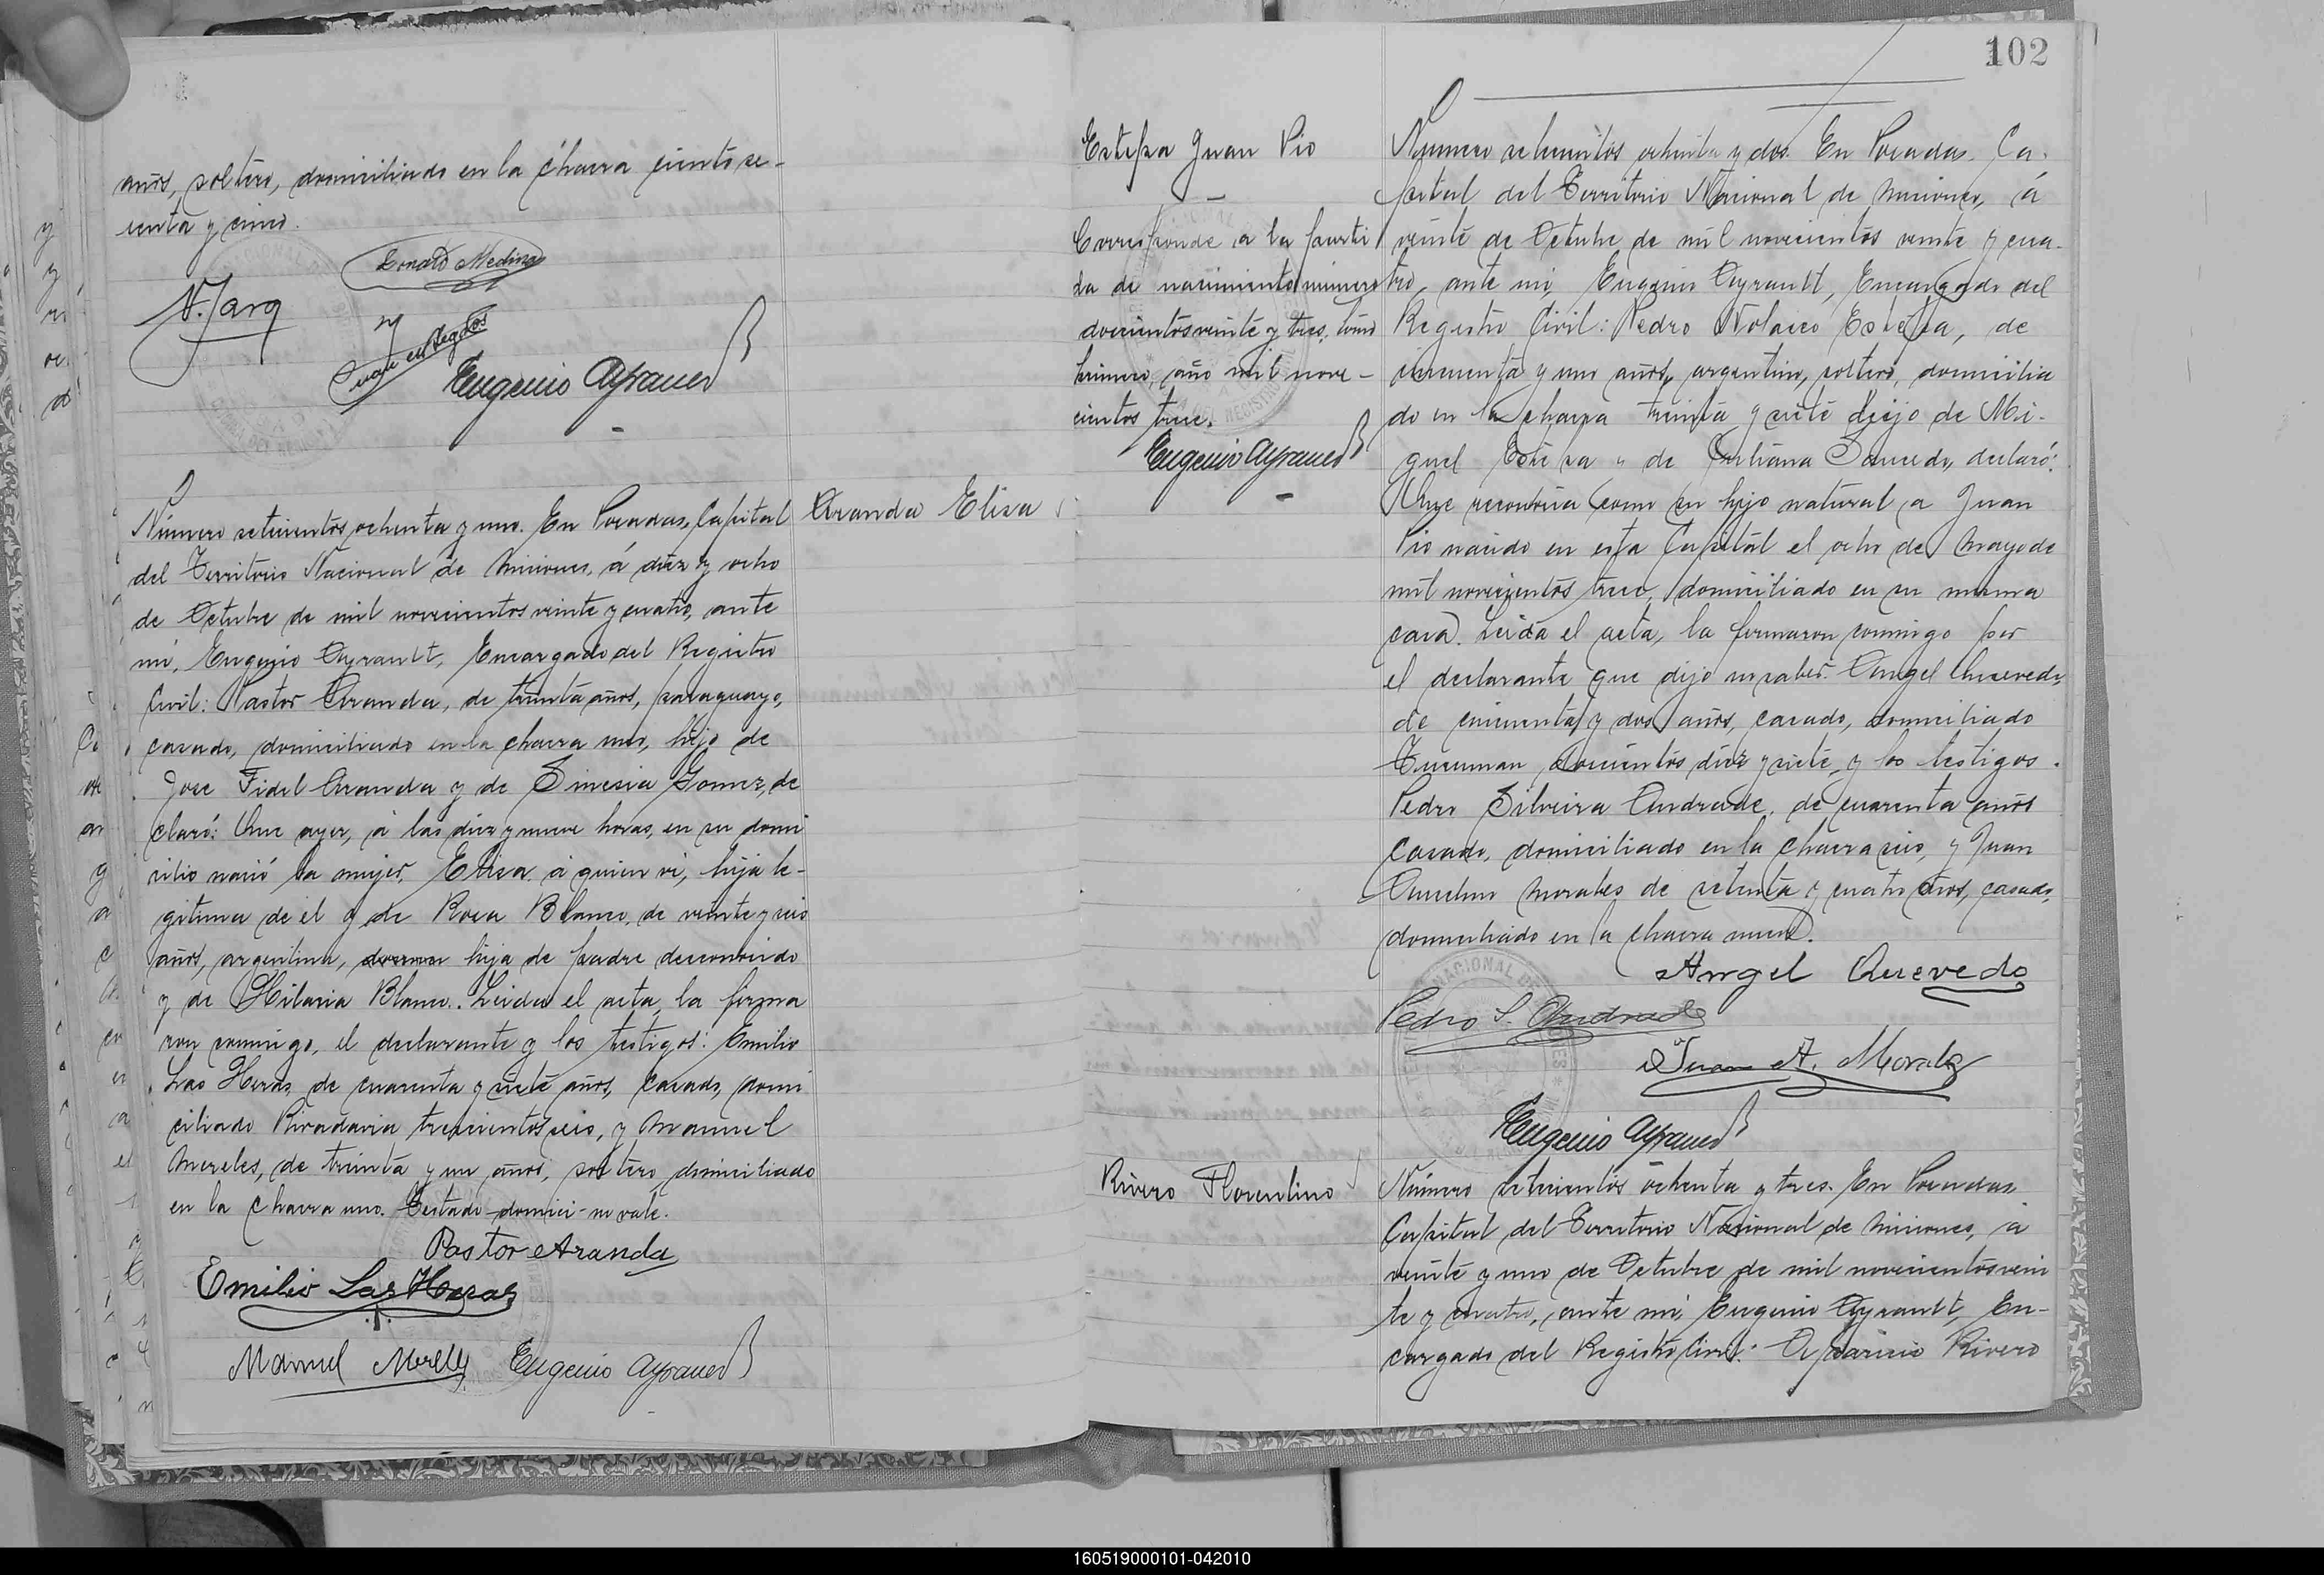 años, soltero, domiciliado en la chacra ciento se-
senta y cinco.
Conrado Medina
Eugenio Ayrault
Número setecientos ochenta y uno. En Posadas, Capital
del Territorio Nacional de Misiones, á diez y ocho
de Octubre de mil novecientos veinte y cuatro, ante
mí, Eugenio Ayrault, Encargado del Registro
Civil: Pastor Aranda, de treinta años, paraguayo,
casado, domiciliado en la chacra uno, hijo de
José Fidel Aranda y de Sinesia Gomez, de
claró: Que ayer, á las diez y nueve horas, en su domi
cilio nació la mujer, Elisa á quien vi, hija le-
gitima de él y de Rosa Blanco, de veinte y seis
años, argentina, hija de padre desconocido
y de Hilaria Blanco. Leida el acta, la firma
ron conmigo, el declarante y los testigos: Emilio
Las Heras, de cuarenta y siete años, casado, domi
ciliado Rivadavia trescientos seis, y Manuel
Mereles, de treinta y un años, soltero, domiciliado
en la chacra uno. Testado-domici-no vale.
Pastor Aranda
Emilio Las Heras
Manuel Mereles Eugenio Ayrault
Aranda Elisa
102
Estepa Juan Pio
Corresponde a la parti
da de nacimiento número
doscientos veinte y tres, tomo
primero, año mil nove-
cientos trece.
Eugenio Ayrault
Número setecientos ochenta y dos. En Posadas. Ca-
pital del Territorio Nacional de Misiones, á
veinte de Octubre de mil novecientos veinte y cua-
tro, ante mi, Eugenio Ayrault, Encargado del
Registro Civil: Pedro Nolasco Estepa, de
cincuenta y uno años, argentino, soltero, domicilia
do en la chacra treinta y siete hijo de Mi-
guel Estepa y de Juliana Saucedo, declaró:
Que reconocía como su hijo natural a Juan
Pio nacido en esta Capital el ocho de Mayo de
mil novecientos trece, domiciliado en su misma
casa. Leida el acta, la firmaron conmigo por
el declarante que dijo no saber. Angel Quevedo,
de cincuenta y dos años, casado, domiciliado
Tucuman doscientos diez y siete, y los testigos.
Pedro Silveira Andrade, de cuarenta años
casado, domiciliado en la chacra seis, y Juan
Anselmo Morales de setenta y cuatro años, casado,
domiciliado en la chacra nueve.
Angel Quevedo
Pedro S. Andrade
Juan A. Morales
Eugenio Ayrault
Rivero Florentino
Número setecientos ochenta y tres. En Posadas,
Capital del Territorio Nacional de Misiones, á
veinte y uno de Octubre de mil novecientos vein
te y cuatro, ante mi, Eugenio Ayrault, En-
cargado del Registro Civil: Aparicio Rivero
160519000101-042010